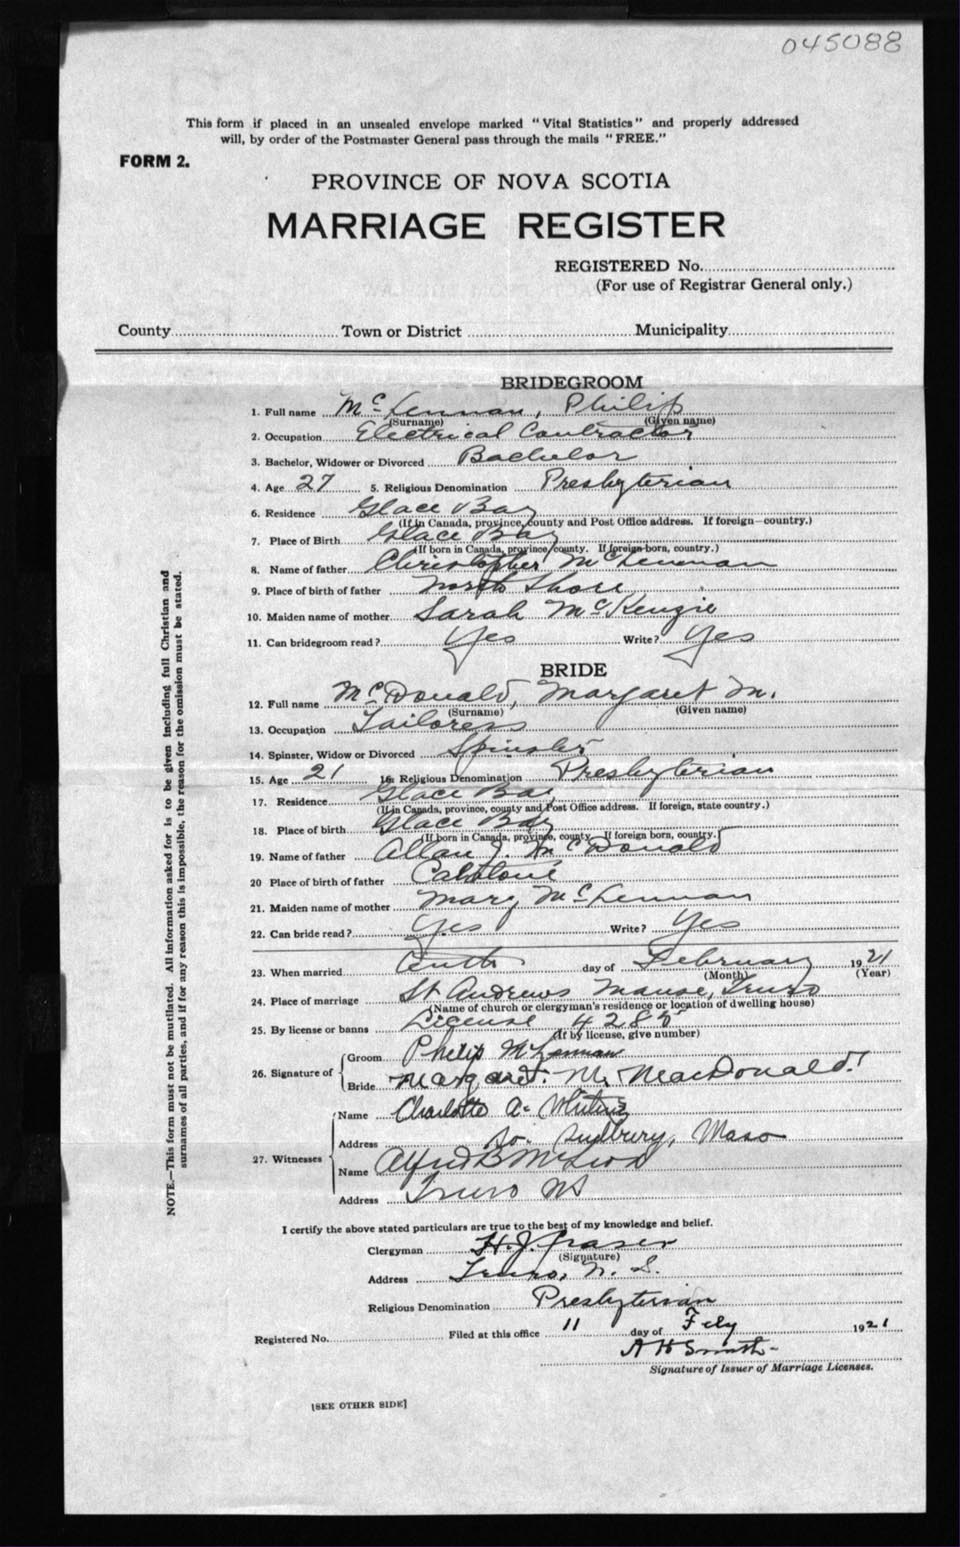 045088
This form if placed in an unsealed envelope marked "Vital Statistics" and properly addressed
will, by order of the Postmaster General pass through the mails "FREE."
FORM 2.
PROVINCE OF NOVA SCOTIA
MARRIAGE REGISTER
REGISTERED No.
(For use of Registrar General only.)
County Town or District Municipality
BRIDEGROOM
1. Full name McLennan, Philip
(Surname) (Given name)
2. Occupation Electrical Contractor
3. Bachelor, Widower or Divorced Bachelor
4. Age 27 5. Religious Denomination Presbyterian
6. Residence Glace Bay
(If in Canada, province, county and Post Office address. If foreign—country.)
7. Place of Birth Glace Bay
(If born in Canada, province county. If foreign-born, country.)
8. Name of father Christopher McLennan
9. Place of birth of father North Shore
10. Maiden name of mother Sarah McKenzie
11. Can bridegroom read? Yes Write? Yes
BRIDE
12. Full name McDonald, Margaret M.
(Surname) (Given name)
13. Occupation Tailoress
14. Spinster, Widow or Divorced Spinster
15. Age 21 16. Religious Denomination Presbyterian
17. Residence Glace Bay
(If in Canada, province, county and Post Office address. If foreign, state country.)
18. Place of birth Glace Bay
(If born in Canada, province, county. If foreign born, country.)
19. Name of father Allan J. McDonald
20 Place of birth of father
21. Maiden name of mother Mary McLennan
22. Can bride read? Yes Write? Yes
23. When married day of February 1921
(Month) (Year)
24. Place of marriage St Andrews Manse, Truro
(Name of church or clergyman's residence or location of dwelling house)
25. By license or banns License 4285
(If by license, give number)
26. Signature of Groom Philip McLennan
Bride Margaret. M. MacDonald.
27. Witnesses Name Charlotte A. Whiting
Address So. Sudbury, Mass
Name Alfred B McLeod
Address Truro NS
I certify the above stated particulars are true to the best of my knowledge and belief.
Clergyman H. J. Fraser
(Signature)
Address Truro, N. S.
Religious Denomination Presbyterian
Registered No. Filed at this office 11 day of Feby 1921
A H Smith
Signature of Issuer of Marriage Licenses.
[SEE OTHER SIDE]
NOTE.—This form must not be mutilated. All information asked for is to be given including full Christian and
surnames of all parties, and if for any reason this is impossible, the reason for the omission must be stated.